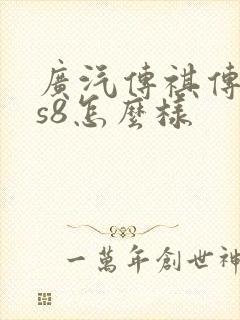 廣汽傳祺傳
s8怎麼樣
一萬年創世神